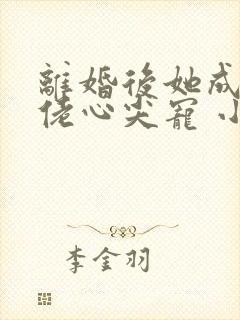 離婚後她成
佬心尖寵 小
李金羽